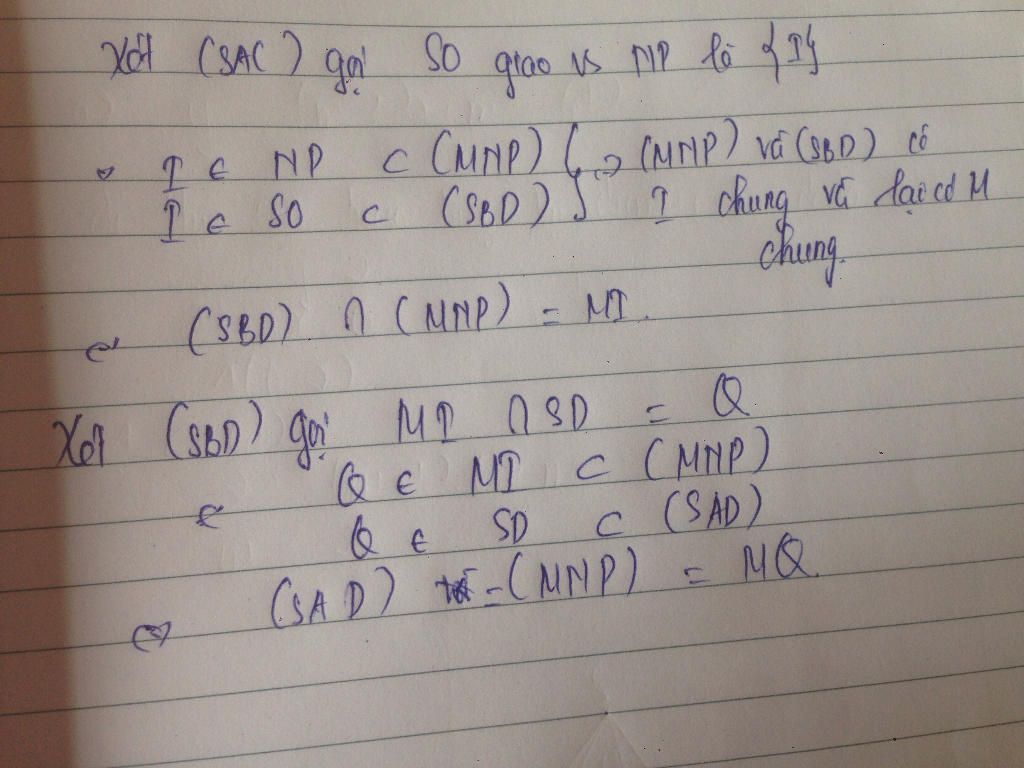 Xét (SAC) gọi SO giao vs NP là {I}
I ∈ NP ⊂ (MNP) } => (MNP) và (SBD) có
I ∈ SO ⊂ (SBD) } I chung và lại có M
chung.
(SBD) ∩ (MNP) = MI.
Xét (SBD) gọi MI ∩ SD = Q
Q ∈ MI ⊂ (MNP)
Q ∈ SD ⊂ (SAD)
(SAD) = (MNP) = MQ.